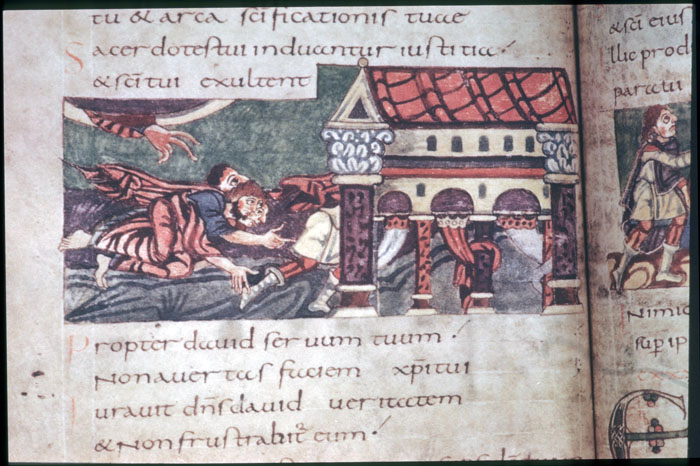 tu & arca scificationis tuae
Sacerdotes tui induantur iustitia
& sci tui exultent
Propter dauid seruum tuum
Non auertas faciem xpi tui
urauit dns dauid ueritatem
& non frustrabitr eum
& sci eius
Illic prod
paraui
Inimic
sup ip